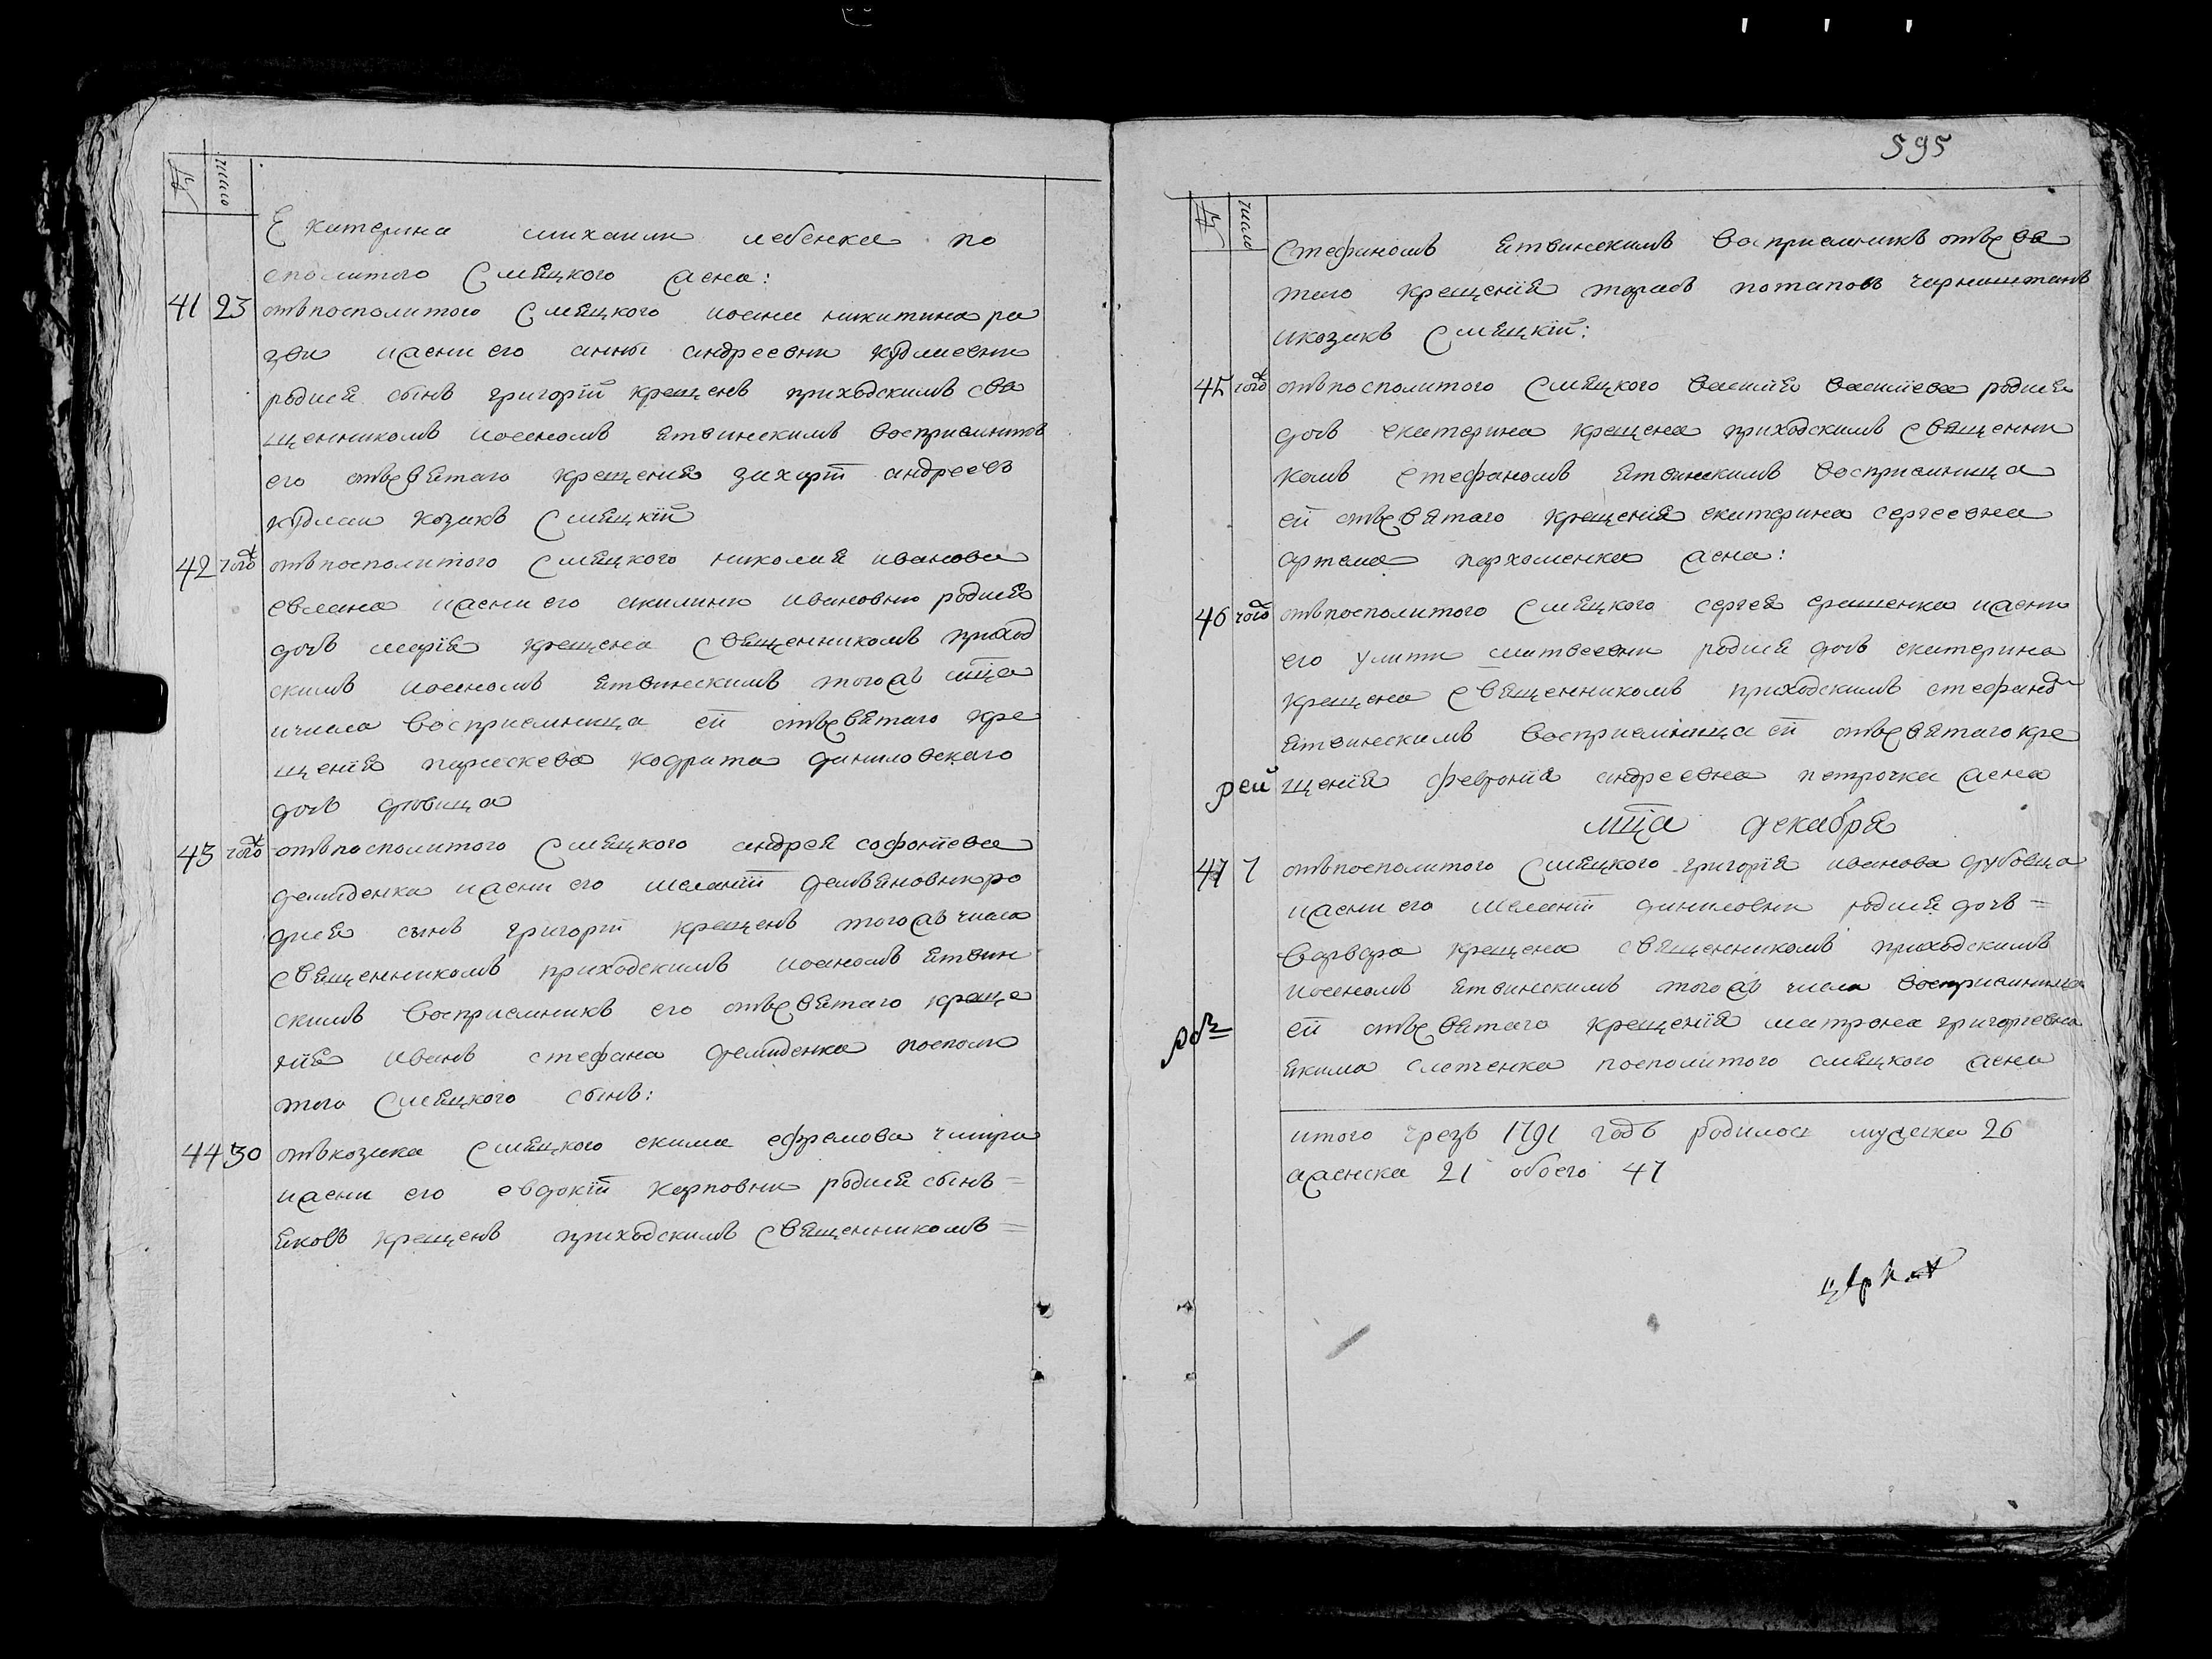 № число
Екатерина михаила лебенка по
сполитого Смѧцкого жена:
41 23 отъ посполитого Смѧцкого иоана никитина ра
зви ижени его анны андреевни кудлаевни
родилсѧ сынъ григорій крещенъ приходскимъ свѧ
щенникомъ иоаномъ ѧтвинскимъ восприемникъ
его отъ свѧтаго крещениѧ захарій андреевъ
кудлаи козакъ Смѧцкій
42 тогож отъ посполитого Смѧцкого николаѧ иванова
евлаша ижени его акилини ивановни родиласѧ
дочь маріѧ крещена свѧщенникомъ приход
скимъ иоаномъ ѧтвинскимъ тогожъ мца
ичисла восприемница ей отъ свѧтаго кре
щеніѧ параскева кодрата даниловскаго
дочь девица
43 тогож отъ посполитого Смѧцкого андреѧ софоніева
демиденка ижени его меланіи демѧновни ро
дилсѧ сынъ григорій крещенъ тогожъ числа
свѧщенникомъ приходскимъ иоаномъ ѧтвин
скимъ восприемникъ его отъ свѧтаго креще
ніѧ иванъ стефана демиденка посполи
того Смѧцкого сынъ:
44 30 отъ козака Смѧцкого екима ефремова
ижени его евдокіи карповни родилсѧ сынъ =
ѧковъ крещенъ приходскимъ свѧщенникомъ =
595
№ число
Стефаномъ ѧтвинскимъ восприемникъ отъ свѧ
таго крещеніѧ тарасъ потаповъ
икозакъ Смѧцкій:
45 тогож отъ посполитого Смѧцкого василіѧ василіева родиласѧ
дочь екатерина крещена приходскимъ свѧщенни
комъ стефаномъ ѧтвинскимъ восприемница
ей отъ свѧтаго крещеніѧ екатерина сергеевна
артема пархоменка жена:
46 тогож отъ посполитого Смѧцкого сергеѧ ерашенка ижени
его улити матвеевни родиласѧ дочь екатерина
крещена свѧщенникомъ приходскимъ стефаном
ѧтвинскимъ восприемница ей отъ свѧтаго кре
рей щеніѧ февроніѧ андреевна петрочка жена
мца декабрѧ
47 7 отъ посполитого Смѧцкого григоріѧ иванова дубовца
ижени его меланіи даниловни родиласѧ дочь =
варвара крещена свѧщенникомъ приходскимъ
иоаномъ ѧтвинскимъ тогожъ числа восприемница
ей отъ свѧтаго крещеніѧ матрона григоріевна
ѧкима слетченка посполитого смѧцкого жена
итого чрезъ 1791 годъ родилось мужеска 26
аженска 21 обоего 47